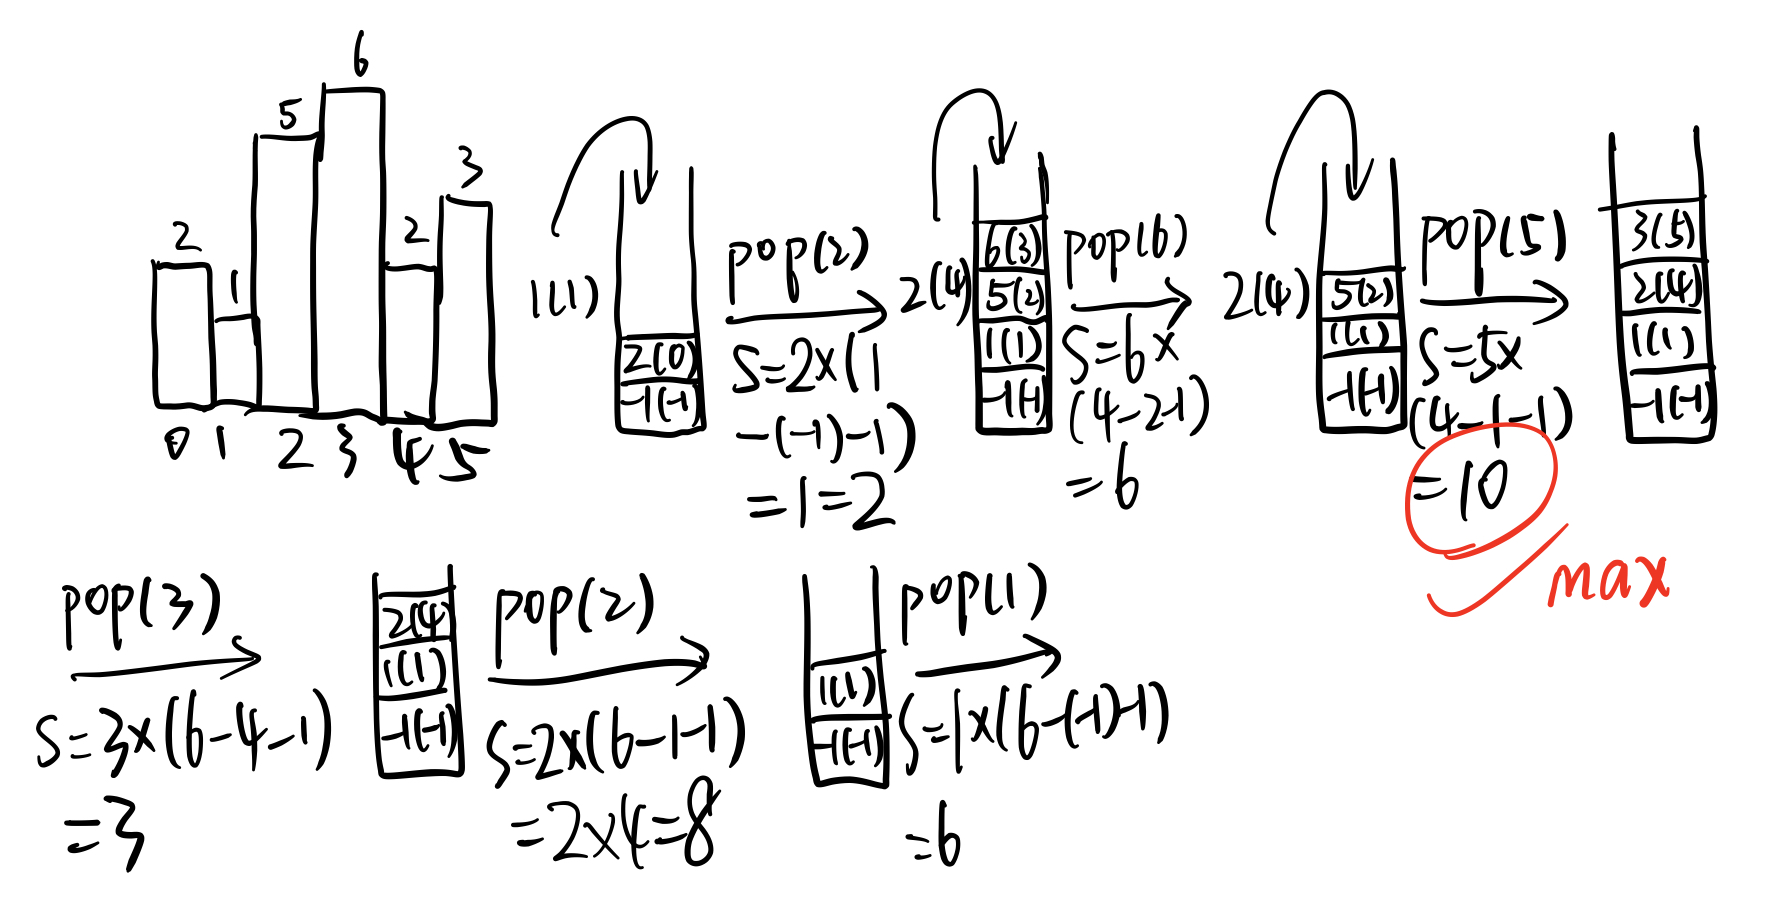 6
5
3
2
2
1
0 1 2 3 4 5
1(1)
2(0)
-1(-1)
pop(2)
S=2x(1
-(-1)-1)
=1=2
2(4)
6(3)
5(2)
1(1)
-1(-1)
pop(6)
S=6x
(4-2-1)
=6
2(4)
5(2)
1(1)
-1(-1)
pop(5)
S=5x
(4-1-1)
=10
max
3(5)
2(4)
1(1)
-1(-1)
pop(3)
S=3x(6-4-1)
=3
2(4)
1(1)
-1(-1)
pop(2)
S=2x(6-1-1)
=2x4=8
1(1)
-1(-1)
pop(1)
S=1x(6-(-1)-1)
=6